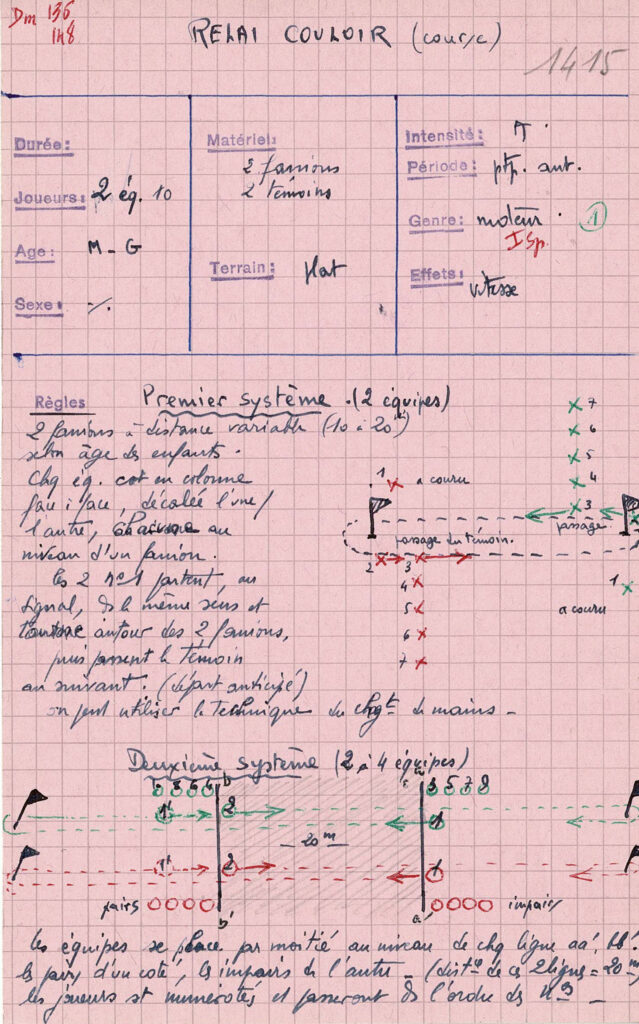 Dm 136
148
RELAI COULOIR (course)
1415
Durée:
Joueurs: 2 éq. 10
Age: M - G
Sexe:
Matériel:
2 fanions
2 témoins
Terrain: plat
Intensité: T.
Période: ptp. aut.
Genre: moteur. 1
I Sp.
Effets: vitesse
Règles Premier système. (2 équipes)
2 fanions à distance variable (10 à 20m)
selon âge des enfants.
Chq éq. est en colonne
face à face, décalée l'une /
l'autre, chacune au
niveau d'un fanion.
les 2 nos 1 partent, au
signal, ds le même sens et
autour des 2 fanions,
puis passent le témoin
au suivant. (départ anticipé)
on peut utiliser la technique du chgt de mains -
7
6
5
4
3
passage
1 a couru
passage du témoin.
2 3
4
5
6
7
1
a couru
Deuxième système (2 à 4 équipes)
b
5 7 8
1' 2 1
- 20m -
1' 2 1
pairs b' a' impairs
les équipes se place par moitié au niveau de chq ligne aa', bb'.
les pairs d'un coté, les impairs de l'autre - (distce de ces 2 lignes = 20m)
les joueurs st numérotés et passeront ds l'ordre des nos -